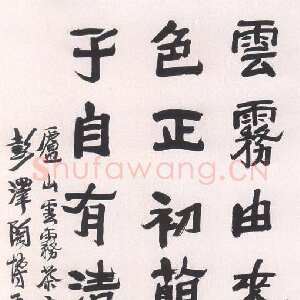 雲霧由來
色正初萌
于自有清
廬山雲霧茶
彭澤陶
Shufawang.CN